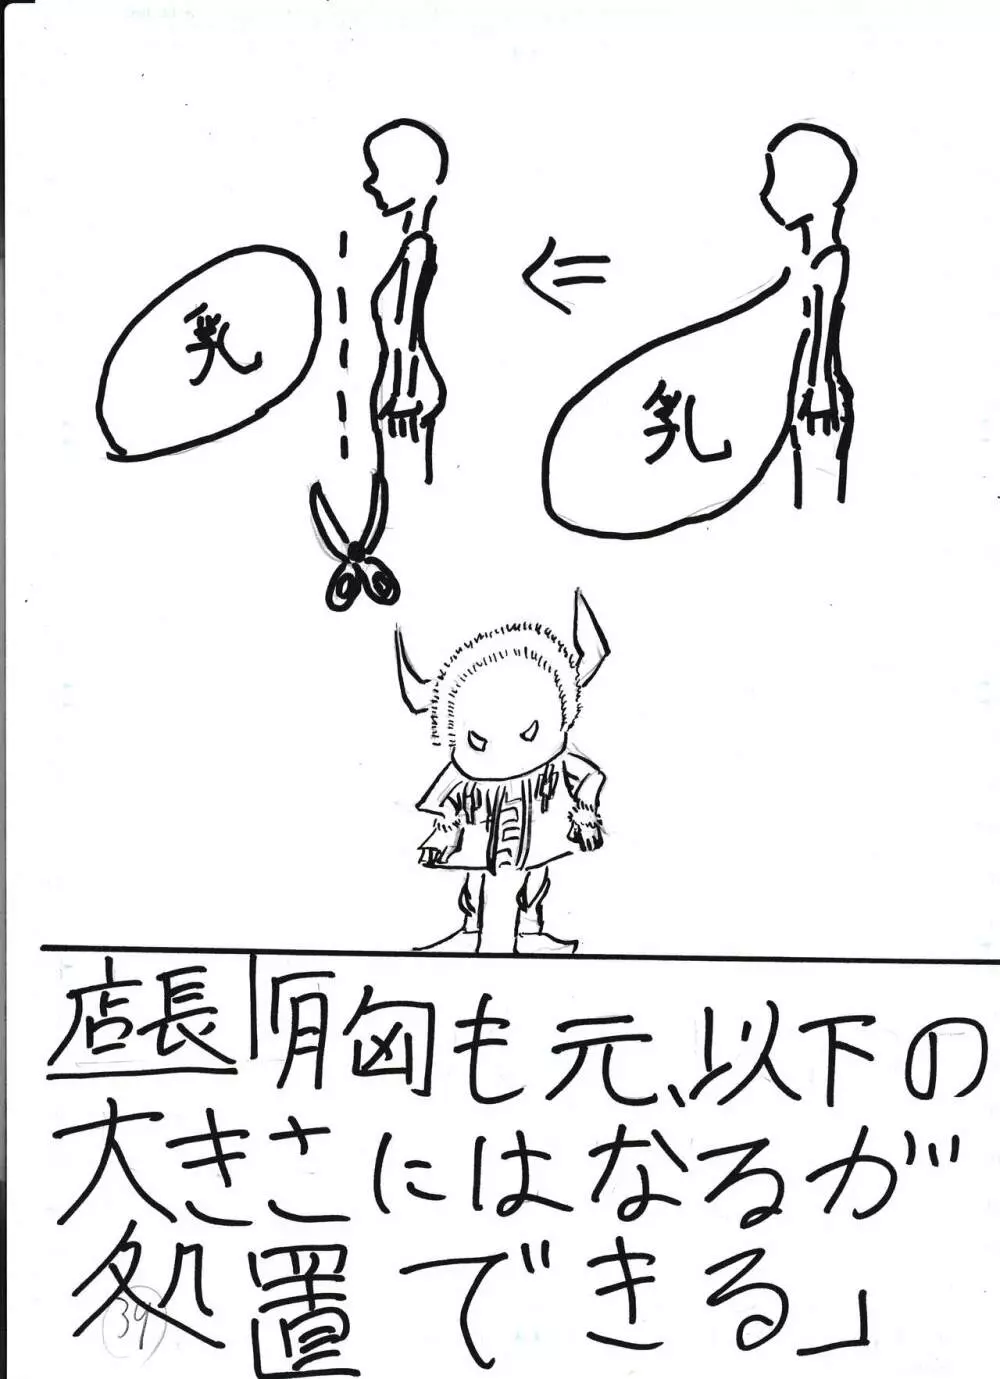 乳
乳
店長「胸も元、以下の
大きさにはなるが
処置できる」
34